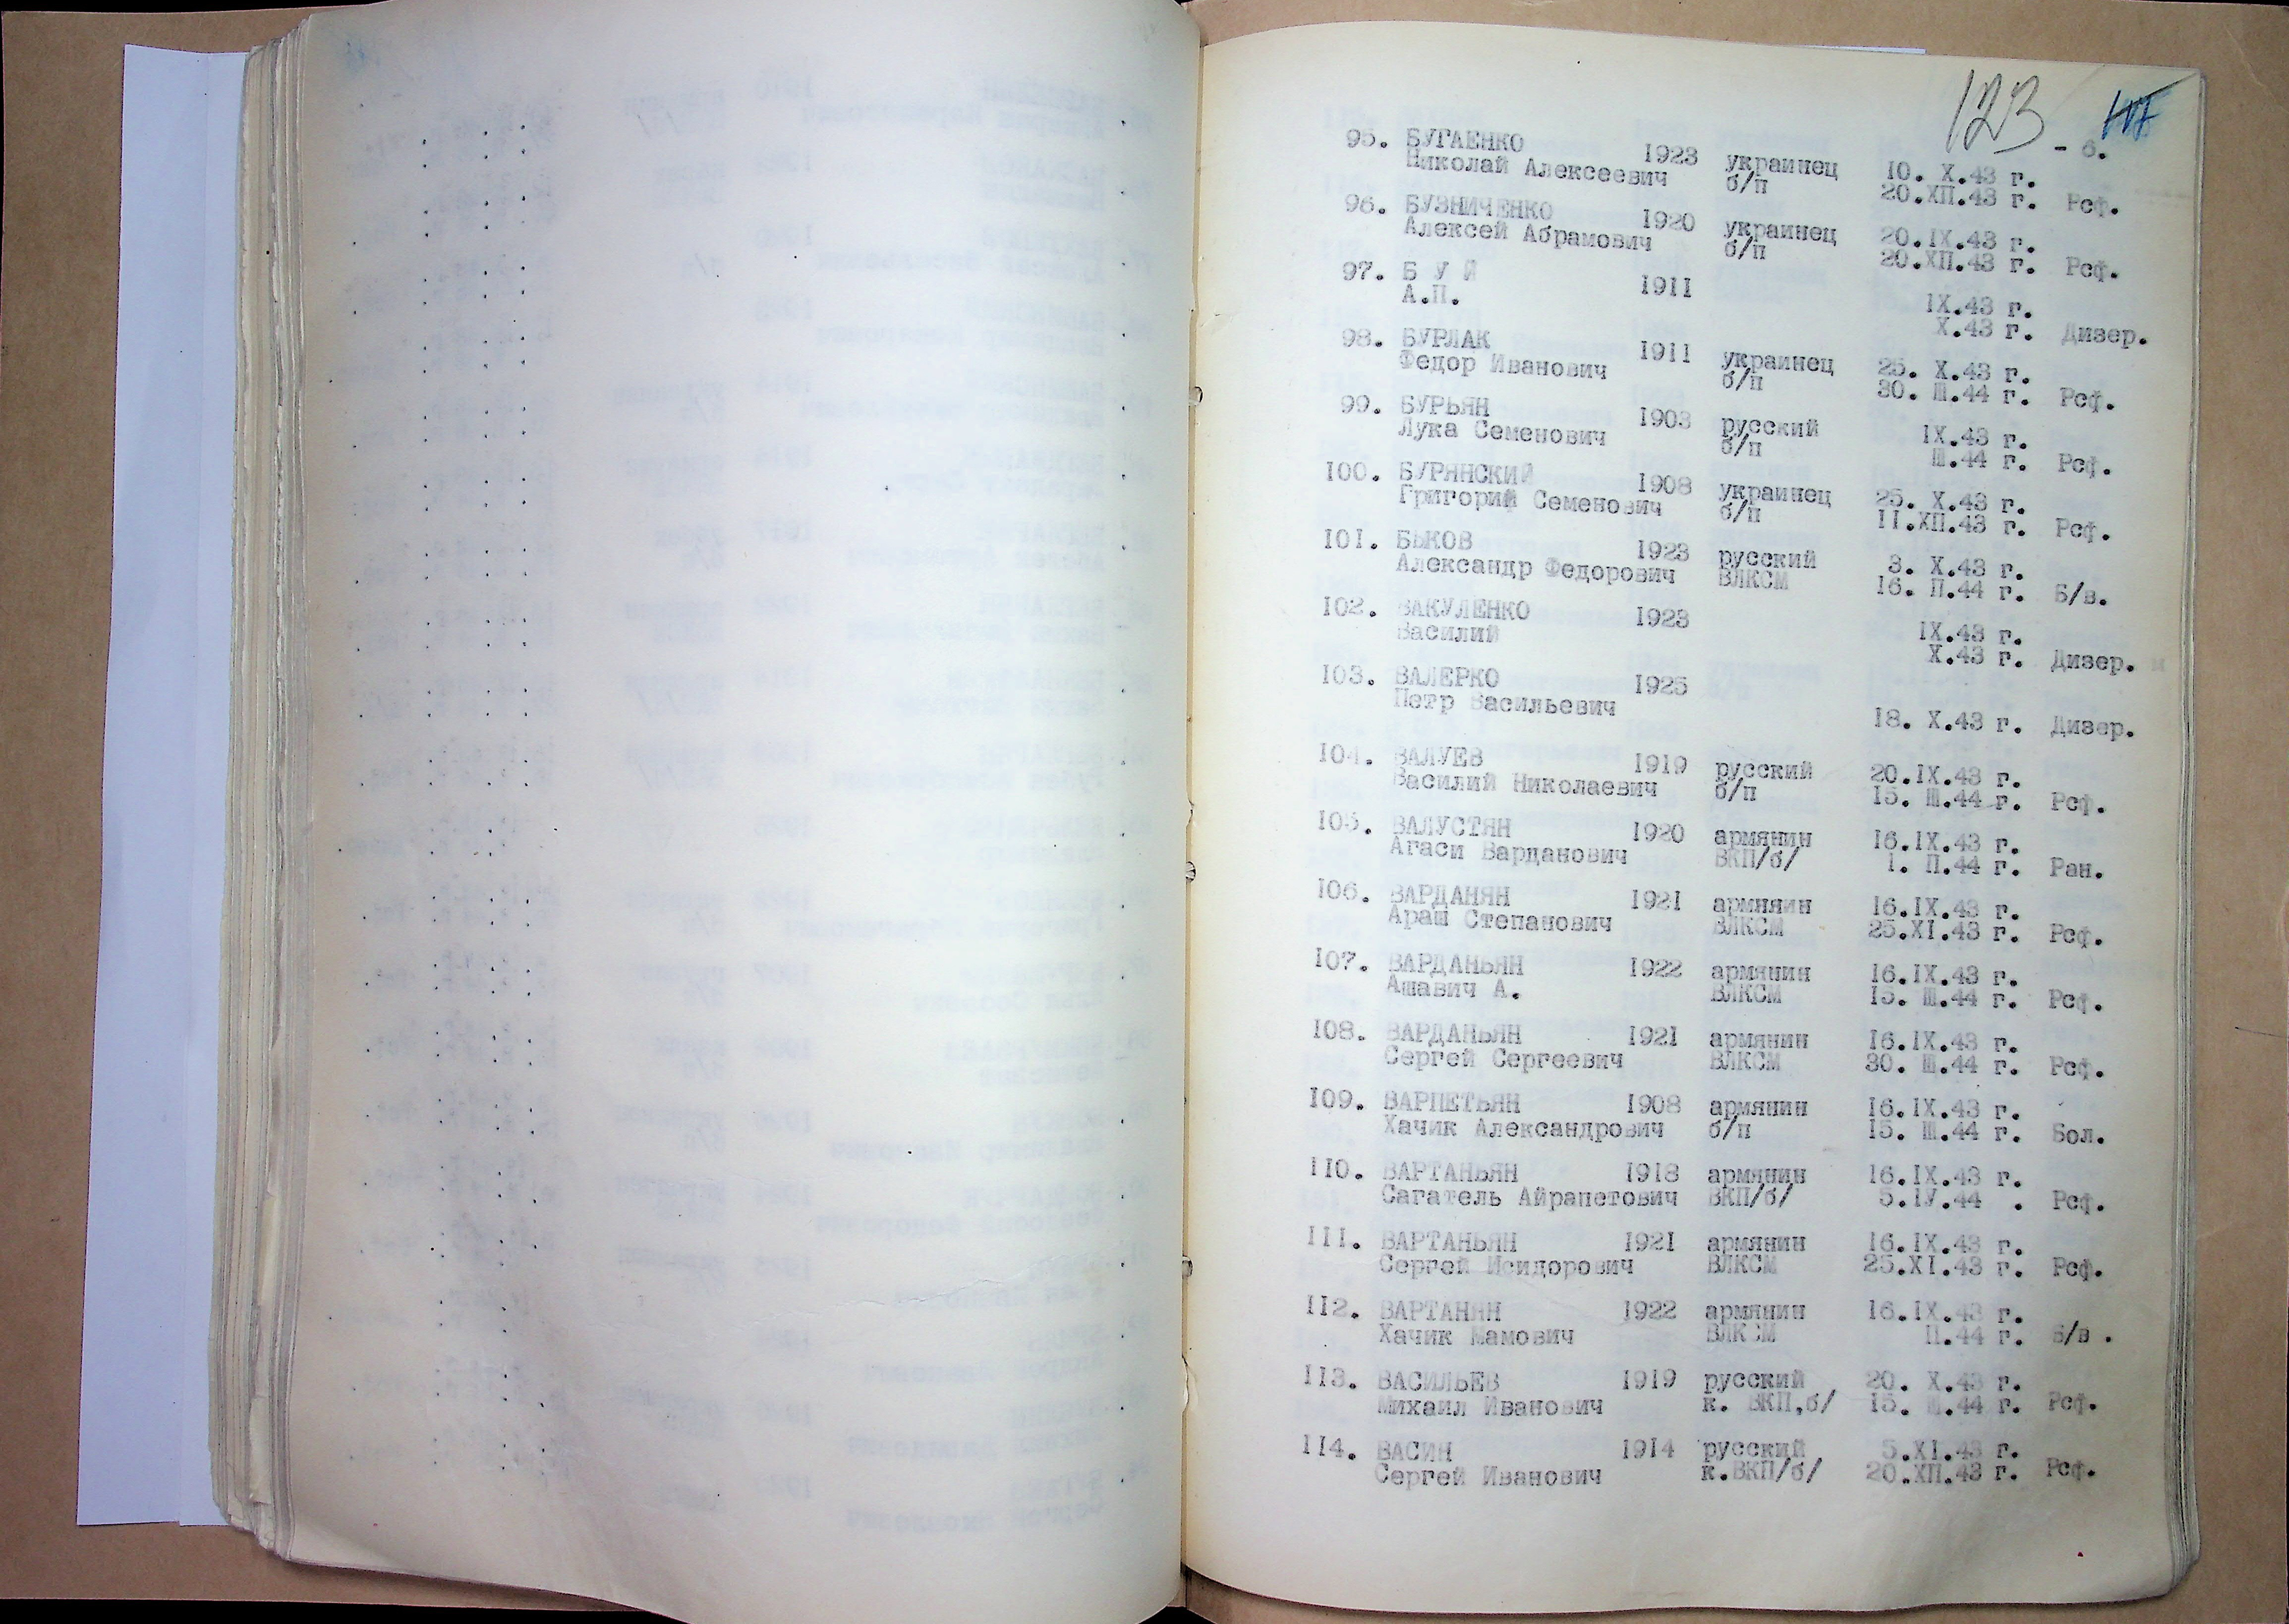 123
- 6.
95. БУГАЕНКО 1923 украинец 10. X.43 г.
Николай Алексеевич б/п 20.ХП.43 г. Рсф.
96. БУЗНИЧЕНКО 1920 украинец 20.IX.43 г.
Алексей Абрамович б/п 20.ХП.43 г. Рсф.
97. Б У Й 1911 IX.43 г.
А.П. X.43 г. Дизер.
98. БУРЛАК 1911 украинец 25. X.43 г.
Федор Иванович б/п 30. Ш.44 г. Рсф.
99. БУРЬЯН 1903 русский IX.43 г.
Лука Семенович б/п Ш.44 г. Рсф.
100. БУРЯНСКИЙ 1908 украинец 25. X.43 г.
Григорий Семенович б/п 11.ХП.43 г. Рсф.
101. БЫКОВ 1923 русский 3. X.43 г.
Александр Федорович ВЛКСМ 16. П.44 г. Б/в.
102. ВАКУЛЕНКО 1923 IX.43 г.
Василий X.43 г. Дизер.
103. ВАЛЕРКО 1925
Петр Васильевич 18. X.43 г. Дизер.
104. ВАЛУЕВ 1919 русский 20.IX.43 г.
Василий Николаевич б/п 15. Ш.44 г. Рсф.
105. ВАЛУСТЯН 1920 армянин 16.IX.43 г.
Агаси Варданович ВКП/б/ 1. П.44 г. Ран.
106. ВАРДАНЯН 1921 армянин 16.IX.43 г.
Араш Степанович ВЛКСМ 25.XI.43 г. Рсф.
107. ВАРДАНЬЯН 1922 армянин 16.IX.43 г.
Ашавич А. ВЛКСМ 15. Ш.44 г. Рсф.
108. ВАРДАНЬЯН 1921 армянин 16.IX.43 г.
Сергей Сергеевич ВЛКСМ 30. Ш.44 г. Рсф.
109. ВАРПЕТЬЯН 1908 армянин 16.IX.43 г.
Хачик Александрович б/п 15. Ш.44 г. Бол.
110. ВАРТАНЬЯН 1918 армянин 16.IX.43 г.
Сагатель Айрапетович ВКП/б/ 5.IУ.44 . Рсф.
111. ВАРТАНЬЯН 1921 армянин 16.IX.43 г.
Сергей Исидорович ВЛКСМ 25.XI.43 г. Рсф.
112. ВАРТАНЯН 1922 армянин 16.IX.43 г.
Хачик Мамович ВЛКСМ П.44 г. Б/в .
113. ВАСИЛЬЕВ 1919 русский 20. X.43 г.
Михаил Иванович к. ВКП,б/ 15. Ш.44 г. Рсф.
114. ВАСИН 1914 русский 5.XI.43 г.
Сергей Иванович к.ВКП/б/ 20.ХП.43 г. Рсф.